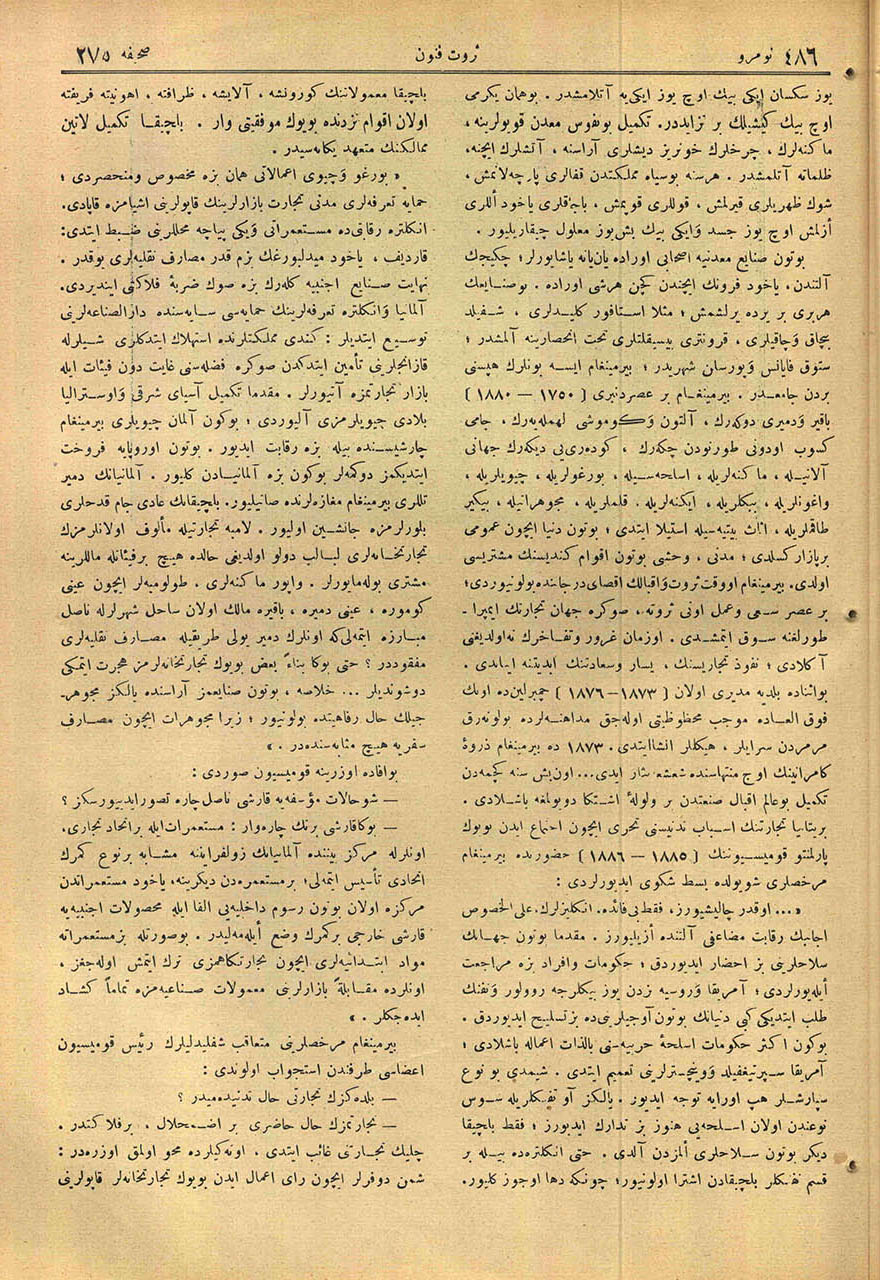 نومرو ٤٨٦
ثروت فنون
صحفه ٢٧٥
یوز سکسان ایکی بیك اوچ یوز ایکی‌یه آتلامشدر . بوهمان یکرمی
اوچ بیك کیشیلك بر تزایددر. تکمیل بونفوس معدن قویولرینه ،
ماکنه‌لرك ، چرخلرك خونریز دیشلری آراسنه ، آتشلرك ایچنه،
ظلماته آتلمشدر . هرسنه بوسیاه مملکتدن قفالری پارچه‌لانمش ،
شوك ظهریلری قیرلمش ، قوللری قوپمش ، باجاقلری یاخود اللری
أزلمش اوچ یوز جسد وایکی بیك بش‌یوز معلول چیقاریلیور .
بوتون صنایع معدنیه اصحابی اوراده یان‌یانه یاشایورلر؛ چکیجك
آلتندن، یاخود فرونك ایچندن کچن هرشی اوراده . بوصنایعك
هربری بر یرده یرلشمش ؛ مثلا استافور کلیدلری ، شفیلد
بچاق وچاقیلری ، قرونتری بیسیقلتلری تحت انحصارینه آلمشدر ؛
ستوق فایانس وپورسلان شهریدر ؛ بیرمینغام ایسه بونلرك هپسنی
بردن جامعدر . بیرمینغام بر عصردنبری ( ١٧٥٠ — ١٨٨٠ )
باقیر ودمیری دوکه‌رك ، آلتون وکوموشی لهمله‌یه‌رك ، جامی
کسوب اودونی طورنودن چکه‌رك ، کوده‌ری‌یی دیکه‌رك جهانی
آلاتیله ، ماکنه‌لریله ، اسلحه‌سیله ، بورغولریله ، چیویلریله ،
واغونلریله ، بیکلریله ، ایکنه‌لریله . قلملریله ، مجوهراتیله ، بیکیر
طاقملریله ، اثاث بیتیه‌سیله استیلا ایتدی ؛ بوتون دنیا ایچون عمومی
برپازار کسلدی ؛ مدنی ، وحشی بوتون اقوام کندیسنك مشتریسی
اولدی. بیرمینغام اووقت ثروت واقبالك اقصای درجاتنده بولونیوردی؛
بر عصر سعی وعمل اونی ثروته ، صوکره جهان تجارتك ایمپرا -
طورلغنه سوق ایتمشدی . اوزمان غرور وتفاخرك نه‌اولدیغنی
آکلادی ؛ نفوذ تجاریسنك ، یسار وسعادتنك ابدیتنه ایناندی .
بواثناده بلدیه مدیری اولان ( ١٨٧٣ – ١٨٧٦ ) چمبرلین‌ده اونك
فوق العاده موجب محظوظیتی اوله‌جق مداهنه‌لرده بولونه‌رق
مرمردن سرایلر ، هیکللر انشا ایتدی . ١٨٧٣ ده بیرمینغام ذروهٔ
کامرانینك اوج منتهاسنده شعشعه نثار ایدی... اون‌بش سنه کچمه‌دن
تکمیل بوعالم اقبال صنعتدن بر ولولهٔ اشتکا دویولمغه باشلادی .
بریتانیا تجارتنك اسباب تدنیسنی تحری ایچون اجتماع ایدن بویوك
پارلمنتو قومیسیوننك ( ١٨٨٥ — ١٨٨٦ ) حضورنده بیرمینغام
مرخصلری شویولده بسط شکوی ایدیورلردی :
« ... اوقدر چالیشیورز، فقط بی‌فائده. انکلیزلرك، علی الخصوص
اجانبك رقابت مضاعفی آلتنده أزیلیورز . مقدما بوتون جهانك
سلاحلرینی بز احضار ایدیوردق ؛ حکومات وافراد بزه مراجعت
أیله‌یورلردی ؛ آمریقا وروسیه بزدن یوز بیکلرجه روولور وتفنك
طلب ایتدیکی کبی دنیانك بوتون آوجیلرینی‌ده بز تسلیح ایدیوردق .
بوکون اکثر حکومات اسلحهٔ حربیه‌سنی بالذات اعماله باشلادی ؛
آمریقا سپرنیغفیلد ووینچسترلرینی تعمیم ایتدی . شیمدی بو نوع
سپارشلر هپ اورایه توجه ایدیور. یالکز آو تفنکلریله سوس
نوعندن اولان اسلحه‌یی هنوز بز تدارك ایدیورز ؛ فقط بلچیقا
دیکر بوتون سلاحلری المزدن آلدی . حتی انکلتره‌ده بیله بر
قسم تفنکلر بلچیقادن اشترا اولونیور؛ چونکه دها اوجوز کلیور.
بلچیقا معمولاتنك کورونشه ، آلایشه ، ظرافته ، اهونیته فریفته
اولان اقوام نزدنده بویوك موفقیتی وار . بلچیقا تکمیل لاتین
ممالکنك متعهد یکانه‌سیدر .
« بورغو وچیوی اعمالاتی همان بزه مخصوص ومنحصردی ؛
حمایه تعرفه‌لری مدنی تجارت بازارلرینك قاپولرینی اشیامزه قاپادی.
انکلتره رقابتی‌ده مستعمراتی ویکی پیاچه محللرینی ضبط ایتدی:
قاردیف ، یاخود میدلبورغك بزم قدر مصارف نقلیه‌لری یوقدر .
نهایت صنایع اجنبیه کله‌رك بزه صوك ضربهٔ فلاکتی ایندیردی.
آلمانیا وانکلتره تعرفه‌لرینك حمایه‌سی سایه‌سنده دارالصناعه‌لرینی
توسیع ایتدیلر : کندی مملکتلرنده استهلاك ایتدکلری شیلرله
قازانجلرینی تأمین ایتدکدن صوکره فضله‌سنی غایت دون فیئات ایله
بازار تجارتمزه آتیورلر . مقدما تکمیل آسیای شرقی واوسترالیا
بلادی چیویلرمزی آلیوردی ؛ بوکون آلمان چیویلری بیرمینغام
چارشیسنده بیله بزه رقابت ایدیور . بوتون اوروپایه فروخت
ایتدیکمز دوکمه‌لر بوکون بزه آلمانیادن کلیور . آلمانیانك دمیر
تللری بیرمینغام مغازه‌لرنده صاتیلیور. بلچیقانك عادی جام قدحلری
بلورلرمزه جانشین اولیور . لامبه تجارتیله مألوف اولانلرمزك
تجارتخانه‌لری لبالب دولو اولدیغی حالده هیچ برفیئاتله ماللرینه
مشتری بوله‌مایورلر . واپور ماکنه‌لری . طولومبه‌لر ایچون عینی
کوموره ، عینی دمیره ، باقیره مالك اولان ساحل شهرلرله ناصل
مبارزه ایتمه‌لی‌که اونلرك دمیر یولی طریقیله مصارف نقلیه‌لری
مفقوددر ؟ حتی بوکا بناءً بعض بویوك تجارتخانه‌لرمز هجرت ایتمکی
دوشوندیلر ... خلاصه ، بوتون صنایعمز آراسنده یالکز مجوهر-
جیلك حال رفاهیتده بولونیور ؛ زیرا مجوهرات ایچون مصارف
سفریه هیچ مثابه‌سنده‌در . »
بوافاده اوزرینه قومیسیون صوردی :
— شوحالات مؤسفه‌یه قارشی ناصل چاره تصور ایدییورسکز ؟
— بوکا قارشی برتك چاره‌وار : مستعمرات ایله براتحاد تجاری.
اونلرله مرکز بیننده آلمانیانك زولفراینه مشابه برنوع کمرك
اتحادی تأسیس ایتمه‌لی؛ برمستعمره‌دن دیکرینه، یاخود مستعمراتدن
مرکزه اولان بوتون رسوم داخلیه‌یی الغا ایله محصولات اجنبیه‌یه
قارشی خارجی برکمرك وضع أیله‌مه‌لیدر . بوصورتله بزمستعمراته
مواد ابتدائیه‌لری ایچون تجارتکاهمزی ترك ایتمش اوله‌جغز ،
اونلرده مقابلةً بازارلرینی معمولات صناعیه‌مزه تماماً کشاد
ایده‌جکلر . »
بیرمینغام مرخصلرینی متعاقب شفیلدلیلرك رئیس قومیسیون
اعضاسی طرفندن استجواب اولوندی :
— بلده‌کزك تجارتی حال تدنیده‌میدر ؟
— تجارتمزك حال حاضری بر اضمحلال ، برفلاکتدر .
چلیك تجارتنی غائب ایتدی . اونه‌کیلرده محو اولمق اوزره‌در :
شمن دوفرلر ایچون رای اعمال ایدن بویوك تجارتخانه‌لر قاپولرینی